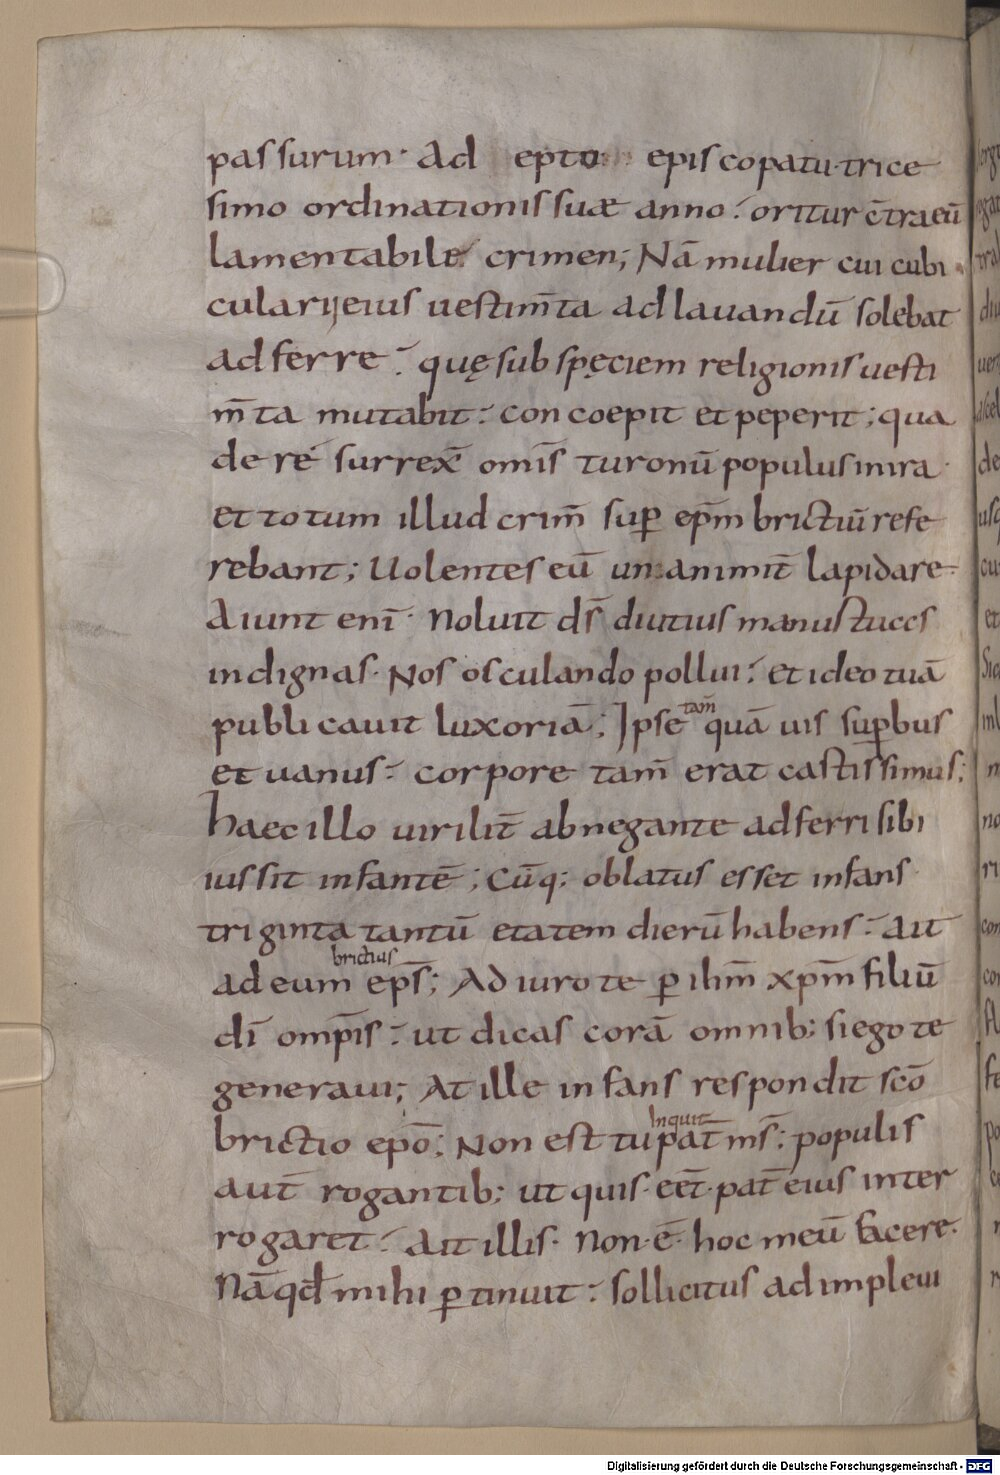 passurum· Ad epto episcopatu· trice
simo ordinationis suæ anno: oritur c̄tra eū
lamentabile crimen; Nā mulier cui cubi
cularij eius uestim̄ta ad lauandū solebat
adferre: quę sub spęciem religionis uesti
m̄ta mutabit: concoepit et peperit; qua
de re surrex̄ om̄is turonū populus in ira·
et totum illud crim̄ sup̱ ep̄m brictiū refe
rebant; Uolentes eū unanimit̄ lapidare·
Aiunt enī· Noluit d̄s diutius manus tuas
indignas· Nos osculando pollui: et ideo tuā
publicauit luxoriā; Ipse tam̄ quā uis sup̱bus
et uanus: corpore tam̄ erat castissimus;
haec illo uirilit̄ abnegante adferri sibi
iussit infantē; Cūq; oblatus esset infans
triginta tantū etatem dierū habens: Ait
brictius
ad eum ep̄s; Adiuro te p̱ ih̄m xp̄m filiū
dī omp̄is: ut dicas corā omnib; si ego te
generaui; At ille infans respondit scō
inquit
brictio epō; Non est tu pat̄ m̄s; populis
aut̄ rogantib; ut quis eēt pat̄ eius inter
rogaret: Ait illis· Non· ē· hoc meū facere·
Nā qđ mihi p̱tinuit: sollicitus adimpleui